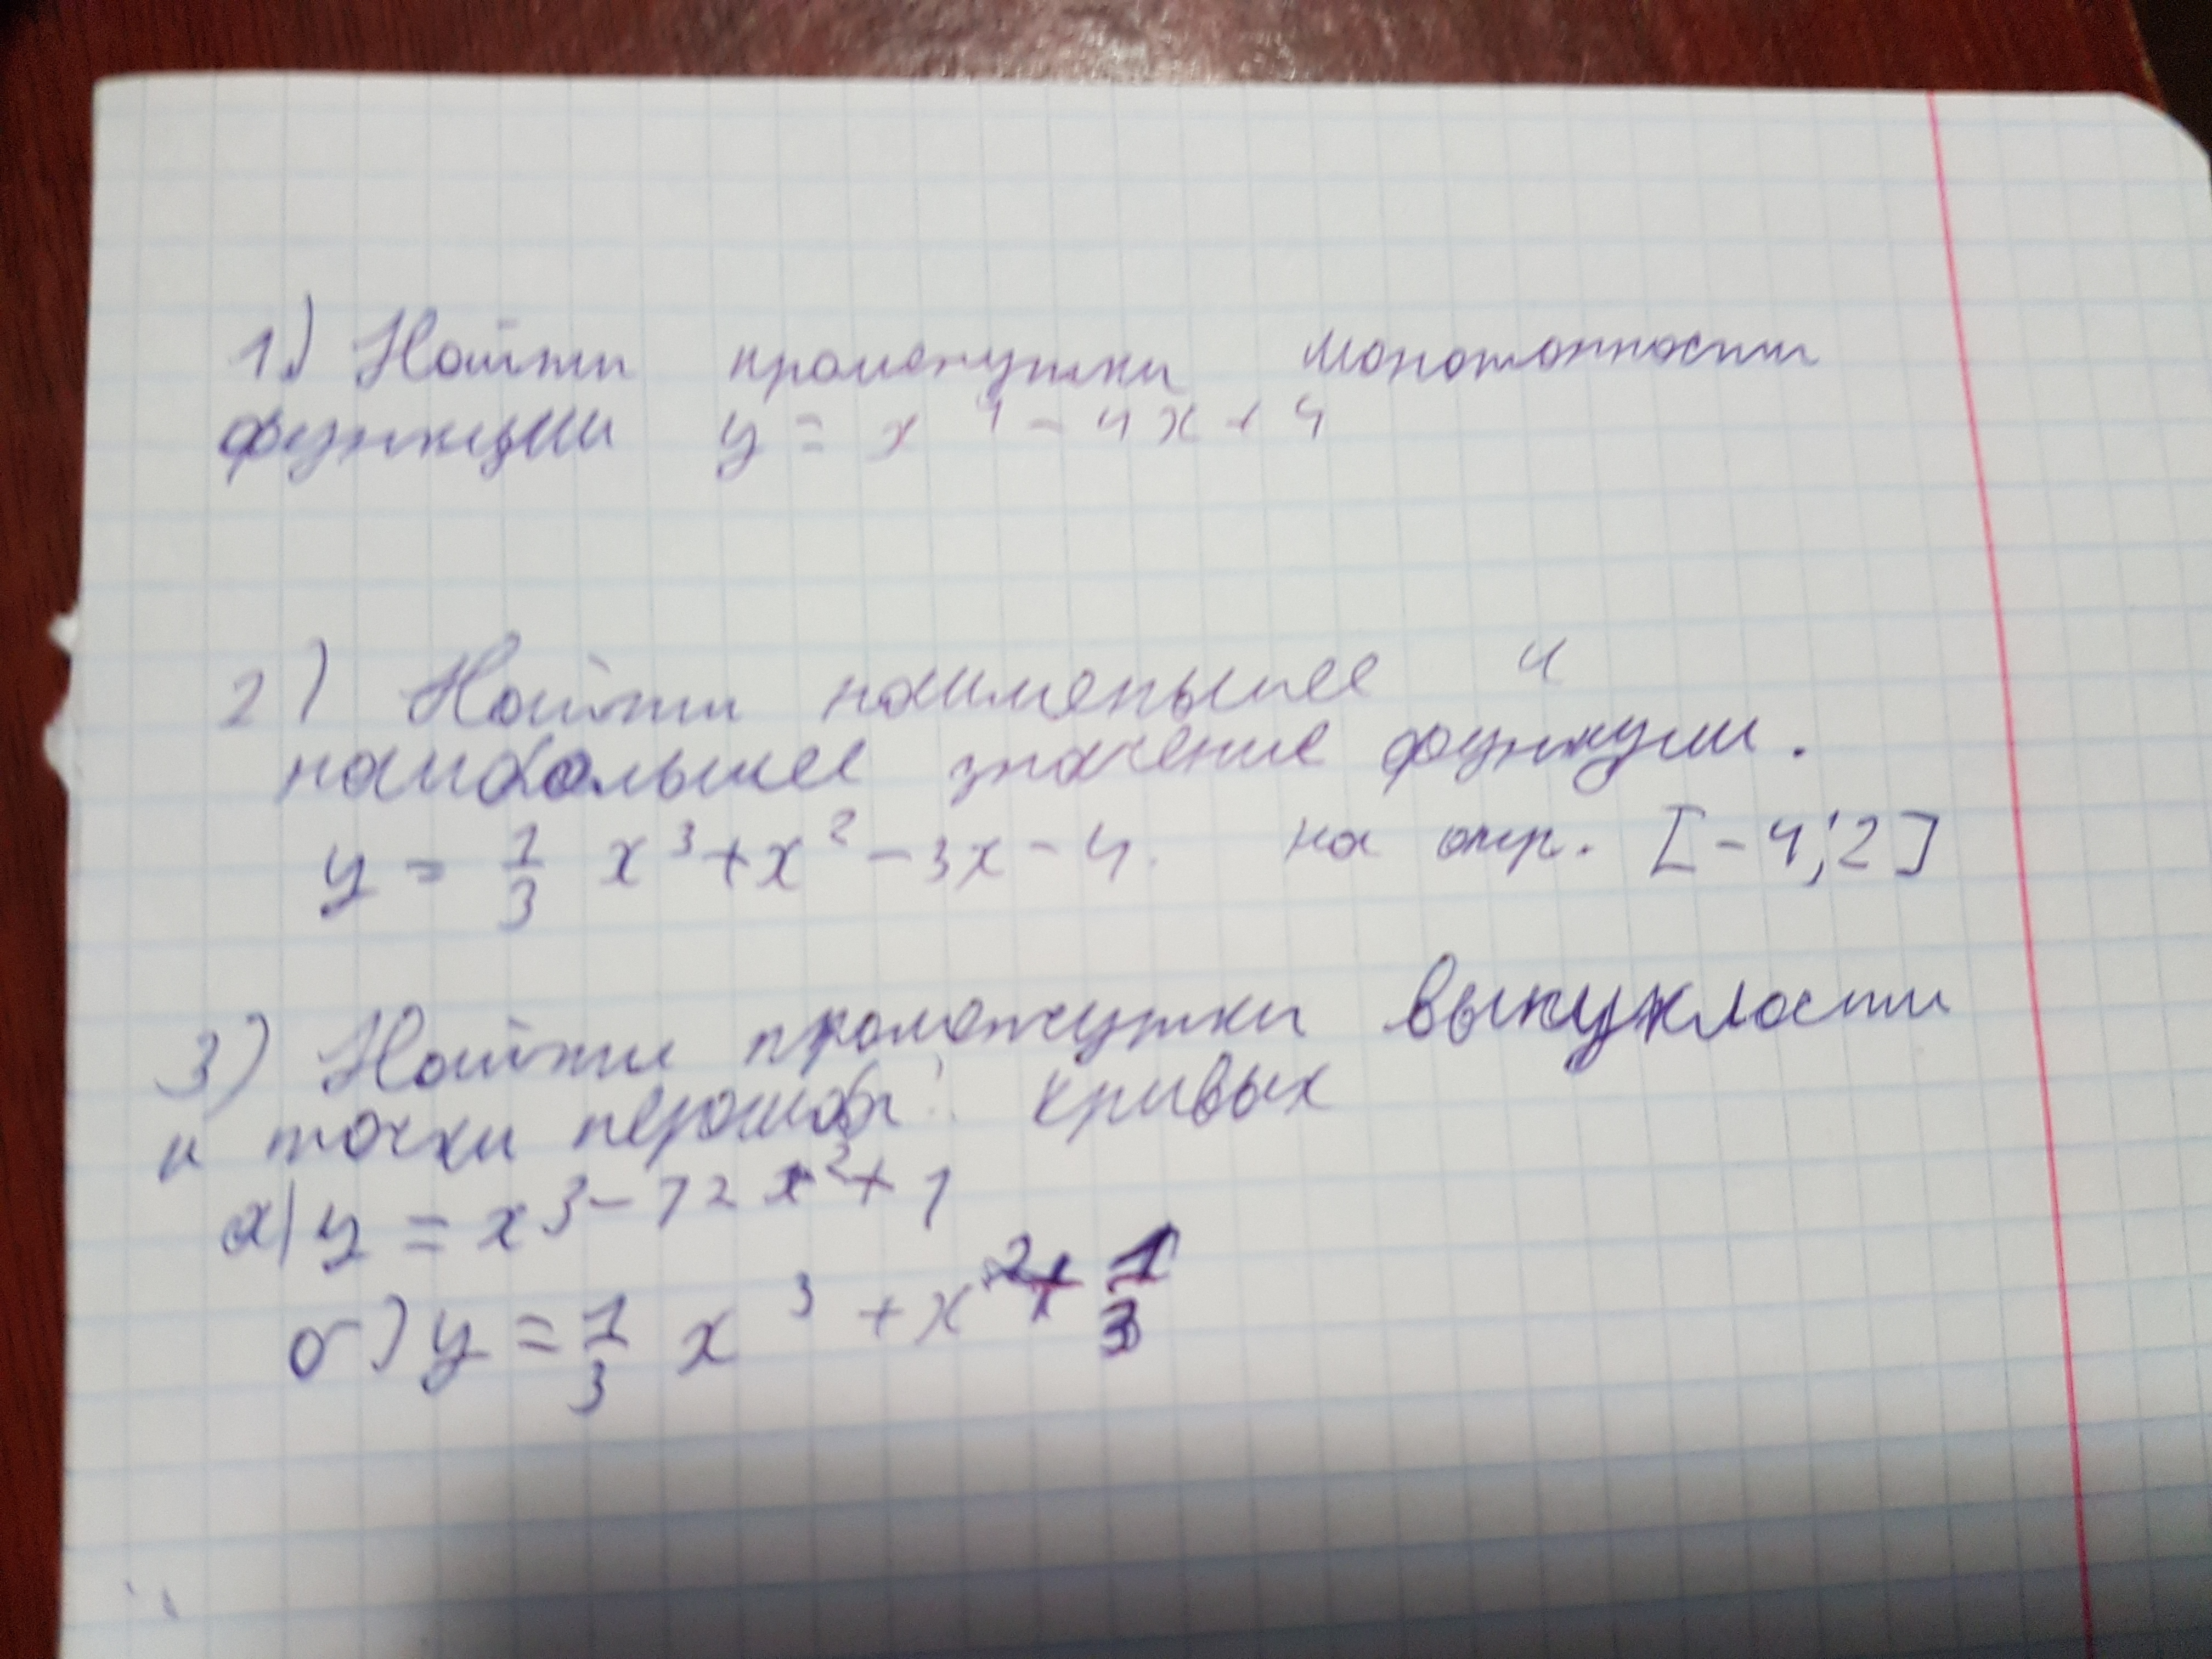 1) Найти промежутки монотонности
функции y = x⁴ - 4x + 4
2) Найти наименьшее и
наибольшее значение функции.
y = 1/3 x³ + x² - 3x - 4. на отр. [-4; 2]
3) Найти промежутки выпуклости
и точки перегиба: кривых
а) y = x³ - 12x² + 1
б) y = 1/3 x³ + x² + 1/3